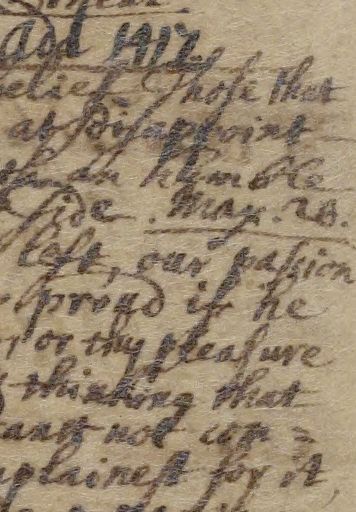 Add 1917
belief. Those that
at disappoint
than an humble
side. May. 28.
left, our passion
proud if he
, or thy pleasure
thinking that
canst not com=
plainest for it,